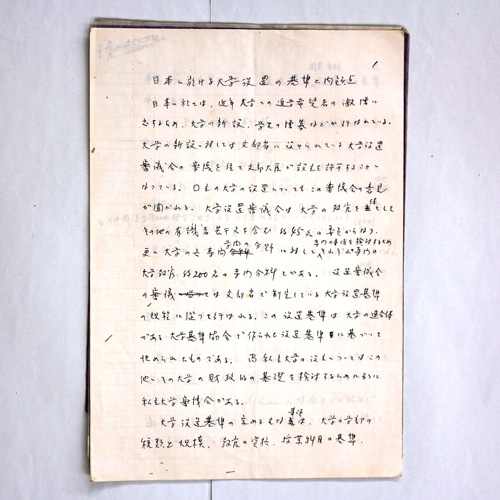 1
日本に於ける大学設置の基準と問題点
日本に於ては、近年大学への進学希望者の激増に
応ずるため、大学の新設、学部の増募などが行はれている。
大学の新設に対しては文部省に設けられている大学設置
審議会の審議を経て文部大臣が設立を許可することに
なっている。国立の大学の設置についてもこの審議会の意見
が聞かれる。大学設置審議会は大学の教官を主体として
その他の有識者若干人を含む約
の委員からなり、
更に大学の
専門の分野に対し
専門の事項を検討するため
それぞれ専門の
大学教官 約200名の専門分科会がある。設置審議会
の審議は文部省で制定している大学設置基準
の規程に従って行はれる。この設置基準は大学の連合体
である大学基準協会で作られた設置基準に基づいて
決められたものである。尚私立大学の設立についてはこの
他にその大学の財政的の基礎を検討するために
私立大学審議会がある。
大学設置基準の定める主な事項は、大学の学部の
種類と規模、教官の資格、授業科目の基準、